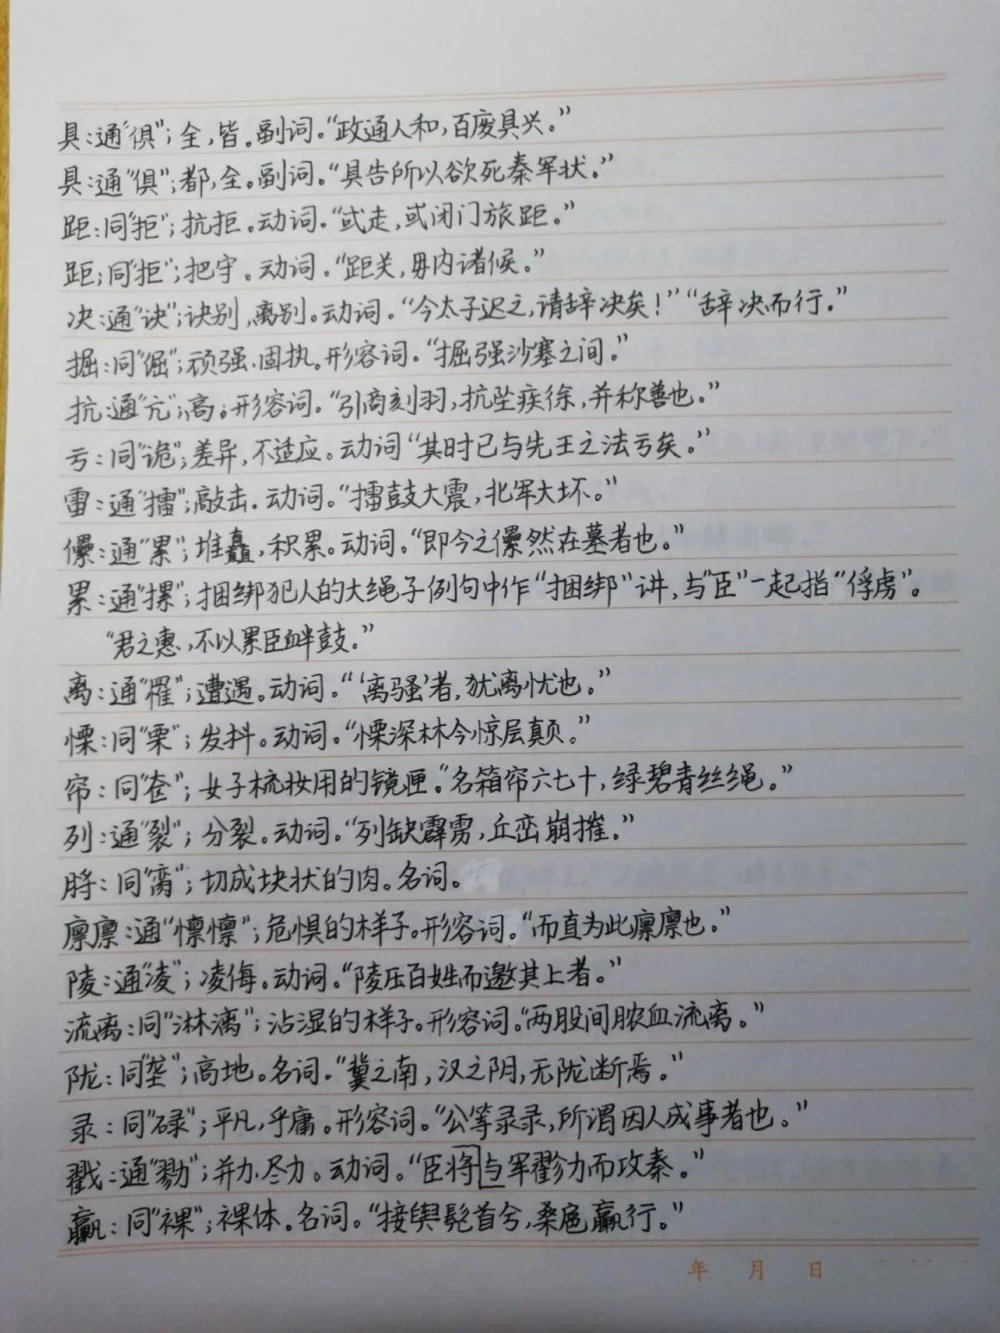 具:通“俱”;全,皆。副词.“政通人和,百废具兴。”
具:通“俱”;都,全。副词。“具告所以欲死秦军状。”
距:同“拒”;抗拒.动词.“或走,或闭门旅距。”
距;同“拒”;把守.动词.“距关,毋内诸候。”
决:通“诀”;诀别,离别。动词.“今太子迟之,请辞决矣!”“辞决而行。”
掘:同“倔”;顽强.固执.形容词.“掘强沙塞之间。”
抗:通“亢”;高。形容词.“引商刻羽,抗坠疾徐,并称善也。”
亏:同“诡”;差异,不适应.动词“其时已与先王之法亏矣。”
雷:通“擂”;敲击.动词.“擂鼓大震,北军大坏。”
儽:通“累”;堆矗,积累.动词.“即今之儽然在墓者也。”
累:通“摞”;捆绑犯人的大绳子例句中作“捆绑”讲,与“臣”一起指“俘虏”。
“君之惠,不以累臣衅鼓。”
离:通“罹”;遭遇.动词.“‘离骚’者,犹离忧也。”
慄:同“栗”;发抖。动词.“慄深林兮惊层巅。”
帘:同“奁”;女子梳妆用的镜匣.“名箱帘六七十,绿碧青丝绳。”
列:通“裂”;分裂.动词.“列缺霹雳,丘峦崩摧.”
脟:同“脔”;切成块状的肉.名词。
廪廪:通“懔懔”;危惧的样子.形容词.“而直为此廪廪也.”
陵:通“凌”;凌侮.动词.“陵压百姓而邀其上者。”
流离:同“淋漓”;沾湿的样子.形容词.“两股间脓血流离。”
陇:同“垄”;高地。名词.“冀之南,汉之阴,无陇断焉。”
录:同“碌”;平凡,乎庸。形容词.“公等录录,所谓因人成事者也。”
戳:通“勠”;并力.尽力。动词.“臣将与军戮力而攻秦。”
赢:同“裸”;裸体.名词.“接舆髡首兮,桑扈赢行。”
年 月 日